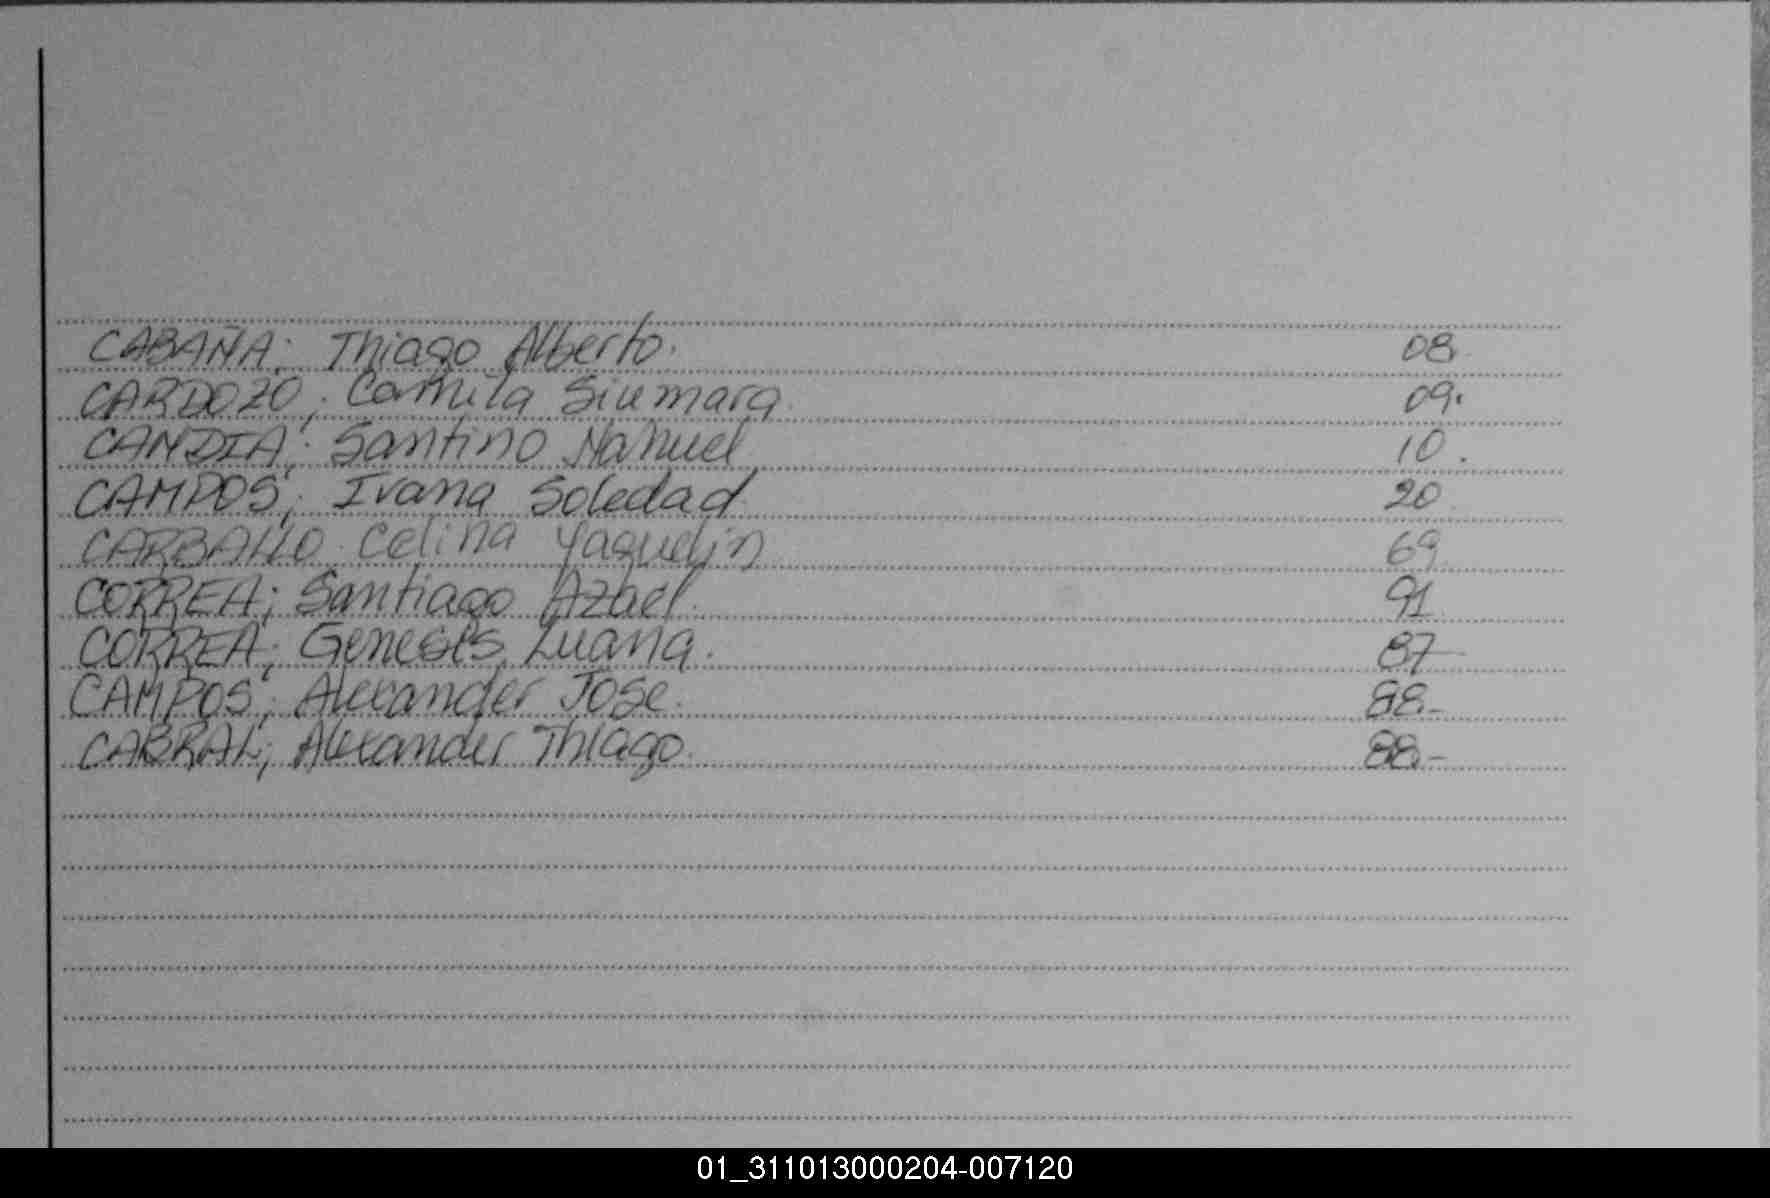 CABAÑA; Thiago Alberto. 08.
CARDOZO; Camila Siumara. 09.
CANDIA; Santino Nahuel 10.
CAMPOS; Ivana Soledad 20
CARBALLO Celina Yaquelin 69
CORREA; Santiago Azael. 91
CORREA; Genesis Luana. 87-
CAMPOS; Alexander Jose. 88.-
CABRAL; Alexander Thiago. 88.-
01_311013000204-007120